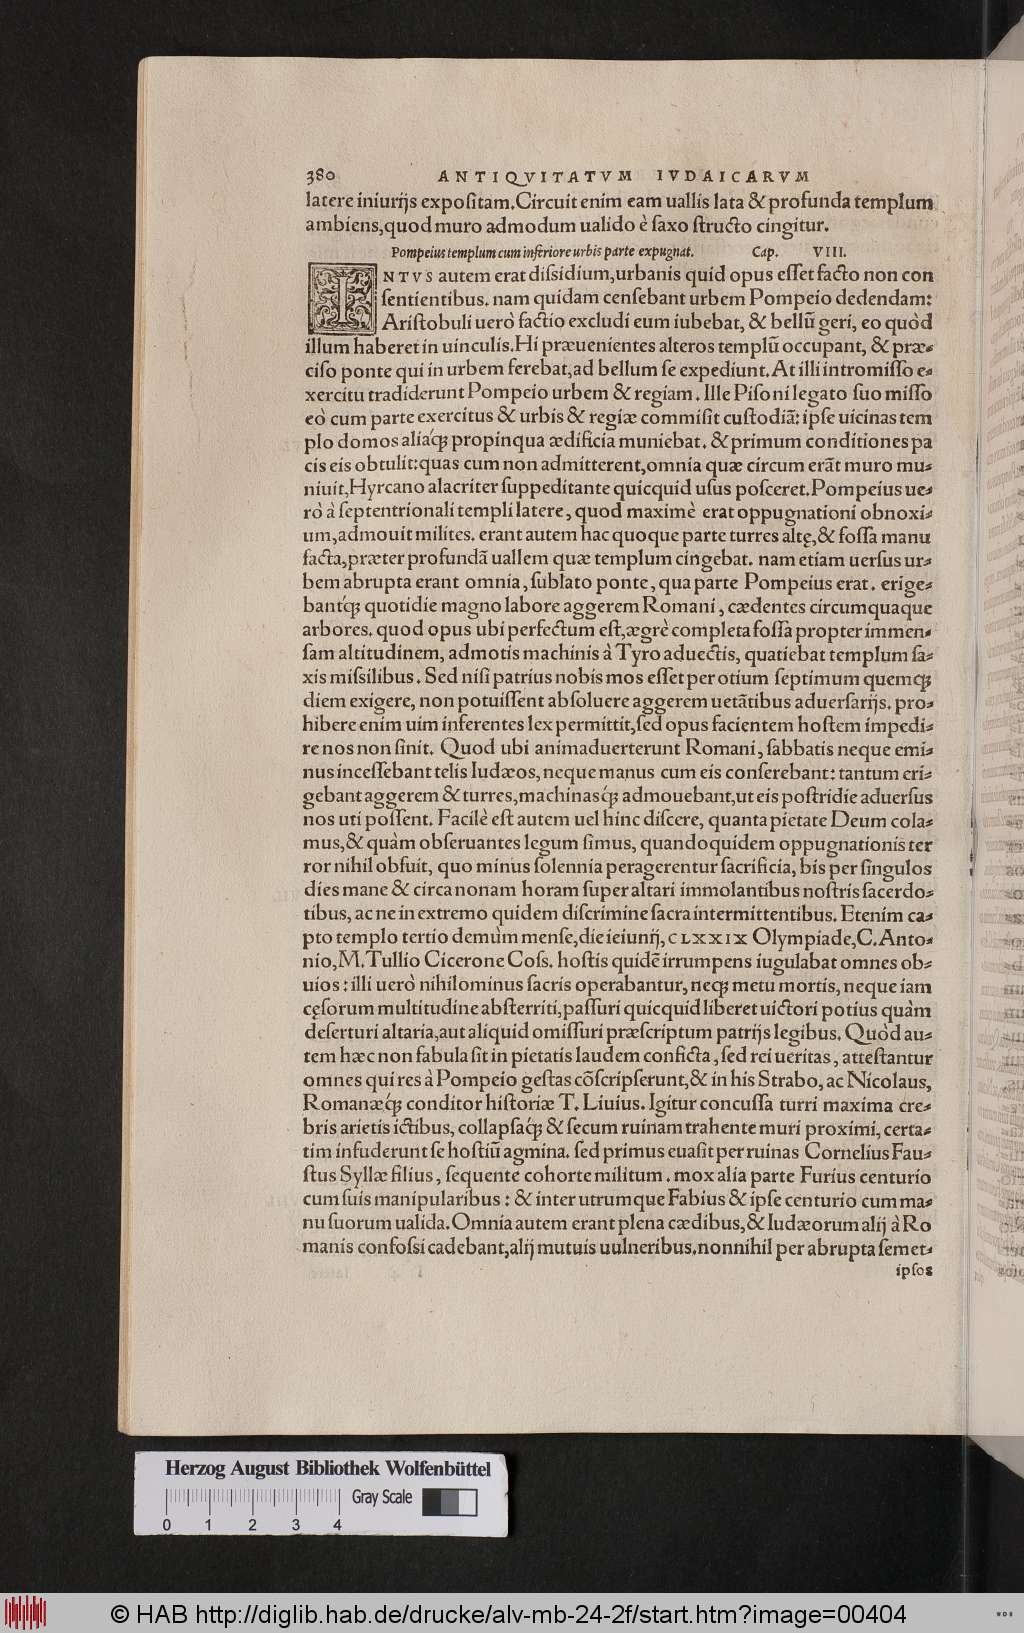 380 ANTIQVITATVM IVDAICARVM
latere iniurijs expoſitam. Circuit enim eam uallis lata & profunda templum
ambiens, quod muro admodum ualido è ſaxo ſtructo cingitur.
Pompeius templum cum inferiore urbis parte expugnat. Cap. VIII.
INTVS autem erat diſsidium, urbanis quid opus eſſet facto non con
ſentientibus. nam quidam cenſebant urbem Pompeio dedendam:
Ariſtobuli uerò factio excludi eum iubebat, & bellũ geri, eo quòd
illum haberet in uinculis. Hi præuenientes alteros templũ occupant, & præ⸗
ciſo ponte qui in urbem ferebat, ad bellum ſe expediunt. At illi intromiſſo e⸗
xercitu tradiderunt Pompeio urbem & regiam. Ille Piſoni legato ſuo miſſo
eò cum parte exercitus & urbis & regiæ commiſit cuſtodiã: ipſe uicinas tem
plo domos aliaq́; propinqua ædificia muniebat. & primum conditiones pa
cis eis obtulit: quas cum non admitterent, omnia quæ circum erãt muro mu⸗
niuit, Hyrcano alacriter ſuppeditante quicquid uſus poſceret. Pompeius ue⸗
rò à ſeptentrionali templi latere, quod maximè erat oppugnationi obnoxi⸗
um, admouit milites. erant autem hac quoque parte turres altę, & foſſa manu
facta, præter profundã uallem quæ templum cingebat. nam etiam uerſus ur⸗
bem abrupta erant omnia, ſublato ponte, qua parte Pompeius erat. erige⸗
bantq́; quotidie magno labore aggerem Romani, cædentes circumquaque
arbores. quod opus ubi perfectum eſt, ægrè completa foſſa propter immen⸗
ſam altitudinem, admotis machinis à Tyro aduectis, quatiebat templum ſa⸗
xis miſsilibus. Sed niſi patrius nobis mos eſſet per otium ſeptimum quemq;
diem exigere, non potuiſſent abſoluere aggerem uetãtibus aduerſarijs. pro⸗
hibere enim uim inferentes lex permittit, ſed opus facientem hoſtem impedi⸗
re nos non ſinit. Quod ubi animaduerterunt Romani, ſabbatis neque emi⸗
nus inceſſebant telis Iudæos, neque manus cum eis conſerebant: tantum eri⸗
gebant aggerem & turres, machinasq́; admouebant, ut eis poſtridie aduerſus
nos uti poſſent. Facilè eſt autem uel hinc diſcere, quanta pietate Deum cola⸗
mus, & quàm obſeruantes legum ſimus, quandoquidem oppugnationis ter
ror nihil obfuit, quo minus ſolennia peragerentur ſacrificia, bis per ſingulos
dies mane & circa nonam horam ſuper altari immolantibus noſtris ſacerdo⸗
tibus, ac ne in extremo quidem diſcrimine ſacra intermittentibus. Etenim ca⸗
pto templo tertio demùm menſe, die ieiunij, CLXXIX Olympiade, C. Anto⸗
nio, M. Tullio Cicerone Coſs. hoſtis quidẽ irrumpens iugulabat omnes ob⸗
uios: illi uerò nihilominus ſacris operabantur, neq; metu mortis, neque iam
cęſorum multitudine abſterriti, paſſuri quicquid liberet uictori potius quàm
deſerturi altaria, aut aliquid omiſſuri præſcriptum patrijs legibus. Quòd au⸗
tem hæc non fabula ſit in pietatis laudem conficta, ſed rei ueritas, atteſtantur
omnes qui res à Pompeio geſtas cõſcripſerunt, & in his Strabo, ac Nicolaus,
Romanæq́; conditor hiſtoriæ T. Liuius. Igitur concuſſa turri maxima cre⸗
bris arietis ictibus, collapſaq́; & ſecum ruinam trahente muri proximi, certa⸗
tim infuderunt ſe hoſtiũ agmina. ſed primus euaſit per ruinas Cornelius Fau⸗
ſtus Syllæ filius, ſequente cohorte militum. mox alia parte Furius centurio
cum ſuis manipularibus: & inter utrumque Fabius & ipſe centurio cum ma⸗
nu ſuorum ualida. Omnia autem erant plena cædibus, & Iudæorum alij à Ro
manis confoſsi cadebant, alij mutuis uulneribus. nonnihil per abrupta ſemet⸗
ipſos
Herzog August Bibliothek Wolfenbüttel
Gray Scale
0 1 2 3 4
© HAB http://diglib.hab.de/drucke/alv-mb-24-2f/start.htm?image=00404